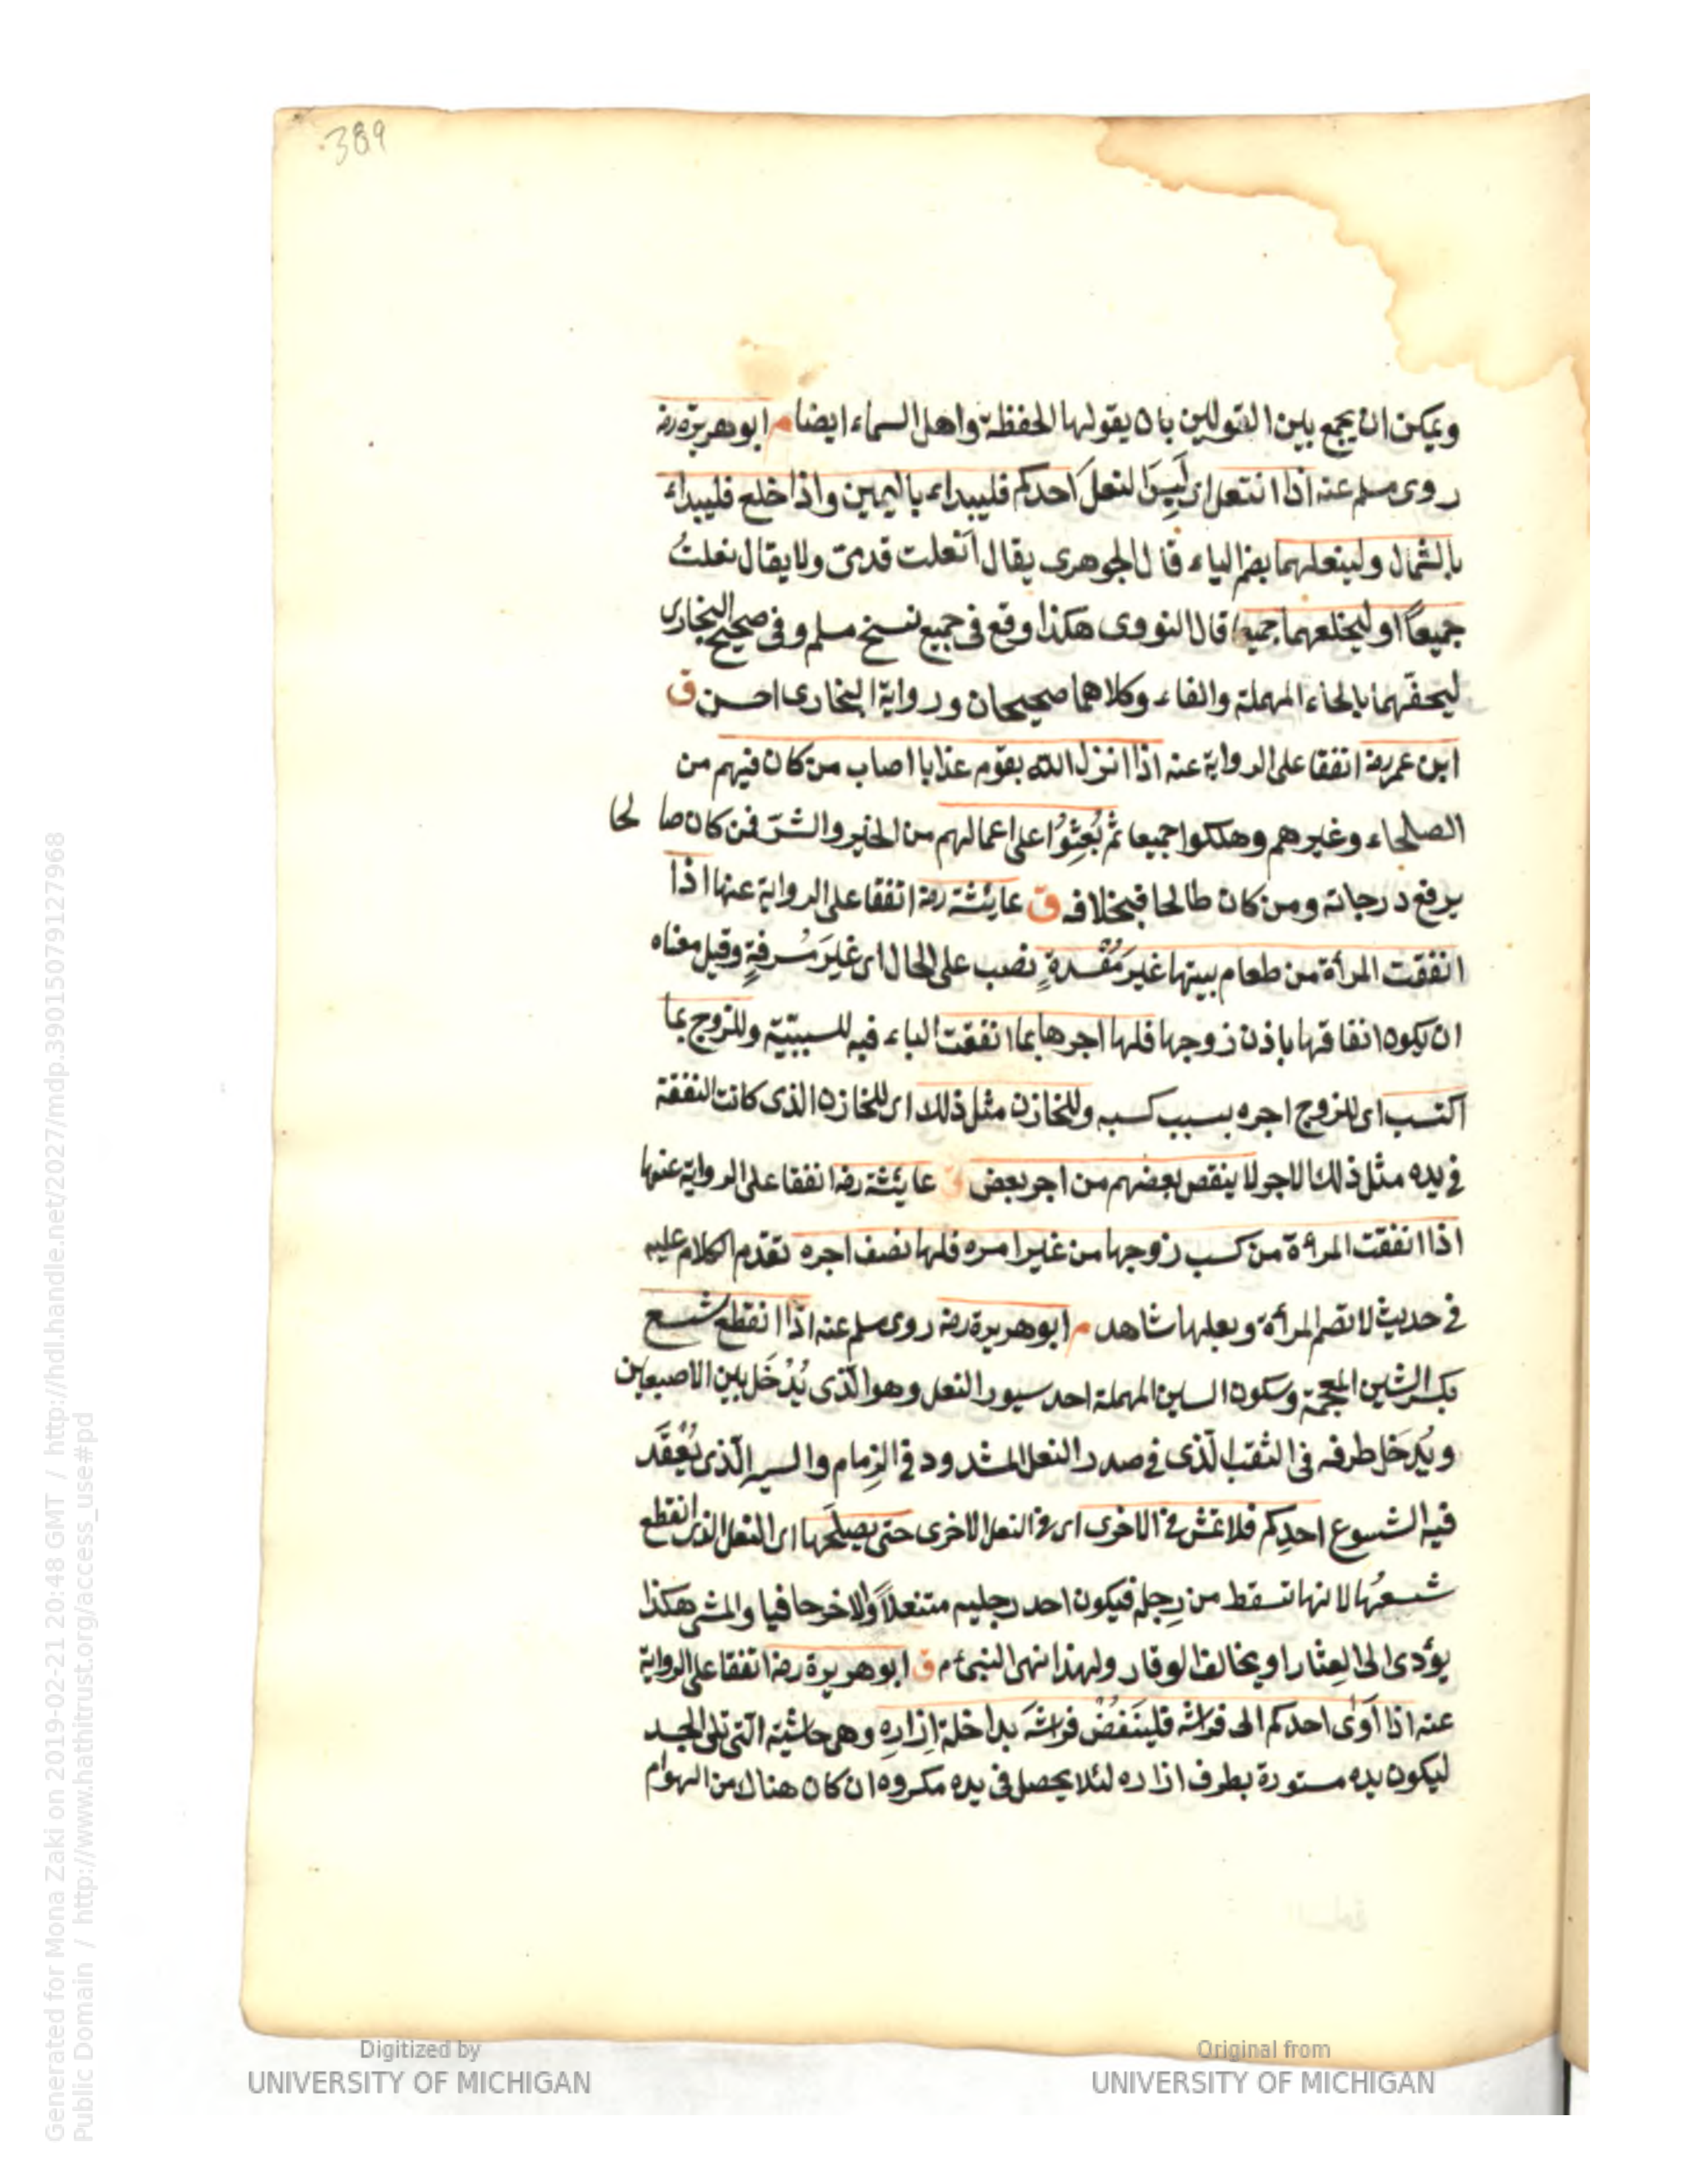 389
ويمكن ان يجمع بين القولين بان يقولها الحفظة واهل السماء ايضا م ابو هريرة رضه
روى مسلم عنه اذا انتعل اى لَبِسَ النعلَ احدكم فليبداء باليمين واذا خلع فليبداء
بالشمال ولينعلهما بضم الياء قال الجوهرى يقال انعلت قدمىّ ولا يقال نعلتُ
جميعاً او ليخلعهما جميعا قال النووى هكذا وقع فى جميع نسخ مسلم وفى صحيح البخارى
ليحفهما بالحاء المهملة والفاء وكلاهما صحيحان ورواية البخارى احسن ق
ابن عمر رضه اتفقا على الرواية عنه اذا انزل الله بقوم عذابا اصاب من كان فيهم من
الصلحاء وغيرهم وهلكوا جميعا ثم بُعِثوُا على اعمالهم من الخير والشرّ فمن كان صالحا
يرفع درجاته ومن كان طالحا فبخلافه ق عايشة رضه اتفقا على الرواية عنها اذا
انفقت المرأة من طعام بيتها غير مُفْسدةٍ نصب على الحال اى غيرَ مُسرفةٍ وقيل معناه
ان يكون انفاقها باذن زوجها فلها اجرها بما انفقت الباء فيه للسببيّة وللزوج بما
اكتسب اى للزوج اجره بسبب كسبه وللخازن مثل ذلك اى للخازن الذى كانت النفقة
فى يده مثل ذلك الاجر لا ينقص بعضهم من اجر بعض ق عايشة رضه اتفقا على الرواية عنها
اذا انفقت المرءة من كسب زوجها من غير امره فلها نصف اجره تقدم الكلام عليه
فى حديث لا تصم المرأة وبعلها شاهد م ابو هريرة رضه روى مسلم عنه اذا انقطع شسع
بكسر الشين المعجمة وسكون السين المهملة احد سيور النعل وهو الّذى يُدْخَل بين الاصبعين
ويُدخَل طرفه فى الثقب الّذى فى صدر النعل المشدود فى الزِمام والسير الّذى يُعْقَد
فيه الشسوع احدِكم فلا تمش فى الاخرى اى فى النعل الاخرى حتى يصلحها اى النعل الذى انقطع
شسعُها لانها تسقط من رِجله فيكون احد رجليه متنعلاً والاخر حافيا والمشى هكذا
يؤدى الى العِثار او يخالف الوقار ولهذا نهى النبىء م ق ابو هريرة رضه اتفقا على الرواية
عنه اذا اَوٰى احدكم الى فراشه فلينَفُضْ فراشَه بداخلة اِزاره وهى حاشيته الّتى تلى الجسد
ليكون يده مستورة بطرف ازاره لئلا يحصل فى يده مكروه ان كان هناك من الهوام
Digitized by
UNIVERSITY OF MICHIGAN
Original from
UNIVERSITY OF MICHIGAN
Generated for Mona Zaki on 2019-02-21 20:48 GMT / http://hdl.handle.net/2027/mdp.39015079127968
Public Domain / http://www.hathitrust.org/access_use#pd